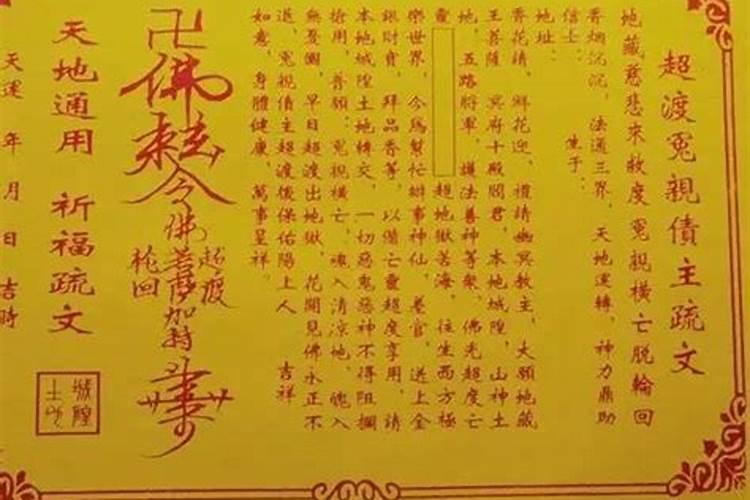 超渡冤親債主疏文
地藏慈悲來救度冤親橫亡脫輪回
香烟沉沉，法通三界，天地運轉，神力鼎助
信士： 生于：
地址：
香花請，鮮花迎，禮請幽冥教主，大願地藏
王菩薩 冥府十殿閻君，本地城隍，山神土
地，五路將軍，護法善神等眾，佛光超度亡
靈 超地獄苦海，往生西方極
樂世界，今為幫忙辦事神仙，差官，送上金
銀財寶，拜品香等，以備亡靈超度享用，請
本地城隍土地轉交，一切惡鬼惡神不得阻攔
搶用，普願：冤親橫亡，魂入清凉地，魄入
無憂國，早日超渡出地獄，花開見佛永正不
退，冤親債主超渡後保佑陽上人 吉祥
如意，身體健康，萬事呈祥。
卍佛 令佛菩薩加持
超度
輪回
天地通用 祈福疏文
城隍
土地
天運 年 月 日 吉時